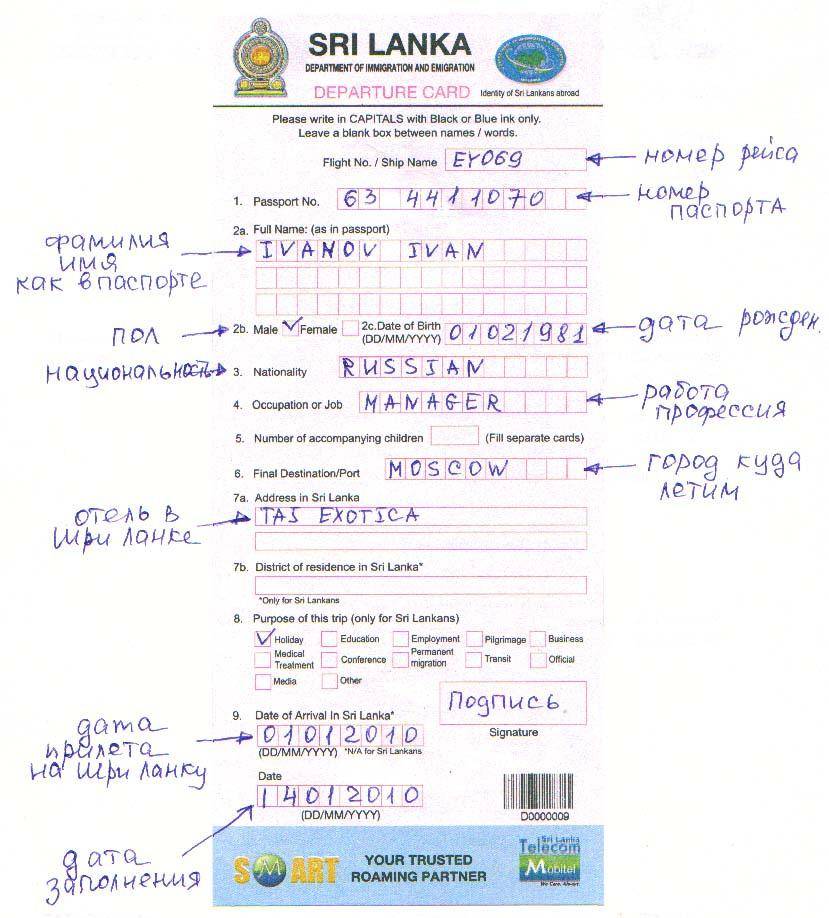 SRI LANKA
DEPARTMENT OF IMMIGRATION AND EMIGRATION
DEPARTURE CARD
Identity of Sri Lankans abroad
Please write in CAPITALS with Black or Blue ink only.
Leave a blank box between names / words.
Flight No. / Ship Name EY069
номер рейса
1. Passport No. 63 4411070
номер
паспорта
2a. Full Name: (as in passport)
IVANOV IVAN
фамилия
имя
как в паспорте
пол
2b. Male Female 2c.Date of Birth
(DD/MM/YYYY) 01021981
дата рожден.
национальность
3. Nationality RUSSIAN
4. Occupation or Job MANAGER
работа
профессия
5. Number of accompanying children (Fill separate cards)
6. Final Destination/Port MOSCOW
город куда
летим
7a. Address in Sri Lanka
TAJ EXOTICA
отель в
Шри Ланке
7b. District of residence in Sri Lanka*
*Only for Sri Lankans
8. Purpose of this trip (only for Sri Lankans)
Holiday Education Employment Pilgrimage Business
Medical Treatment Conference Permanent migration Transit Official
Media Other
Подпись
Signature
9. Date of Arrival In Sri Lanka*
01012010
(DD/MM/YYYY) *N/A for Sri Lankans
дата
прилета
на Шри Ланку
Date
14012010
(DD/MM/YYYY)
дата
заполнения
D0000009
SMART
YOUR TRUSTED
ROAMING PARTNER
Sri Lanka
Telecom
Mobitel
We Care. Always.